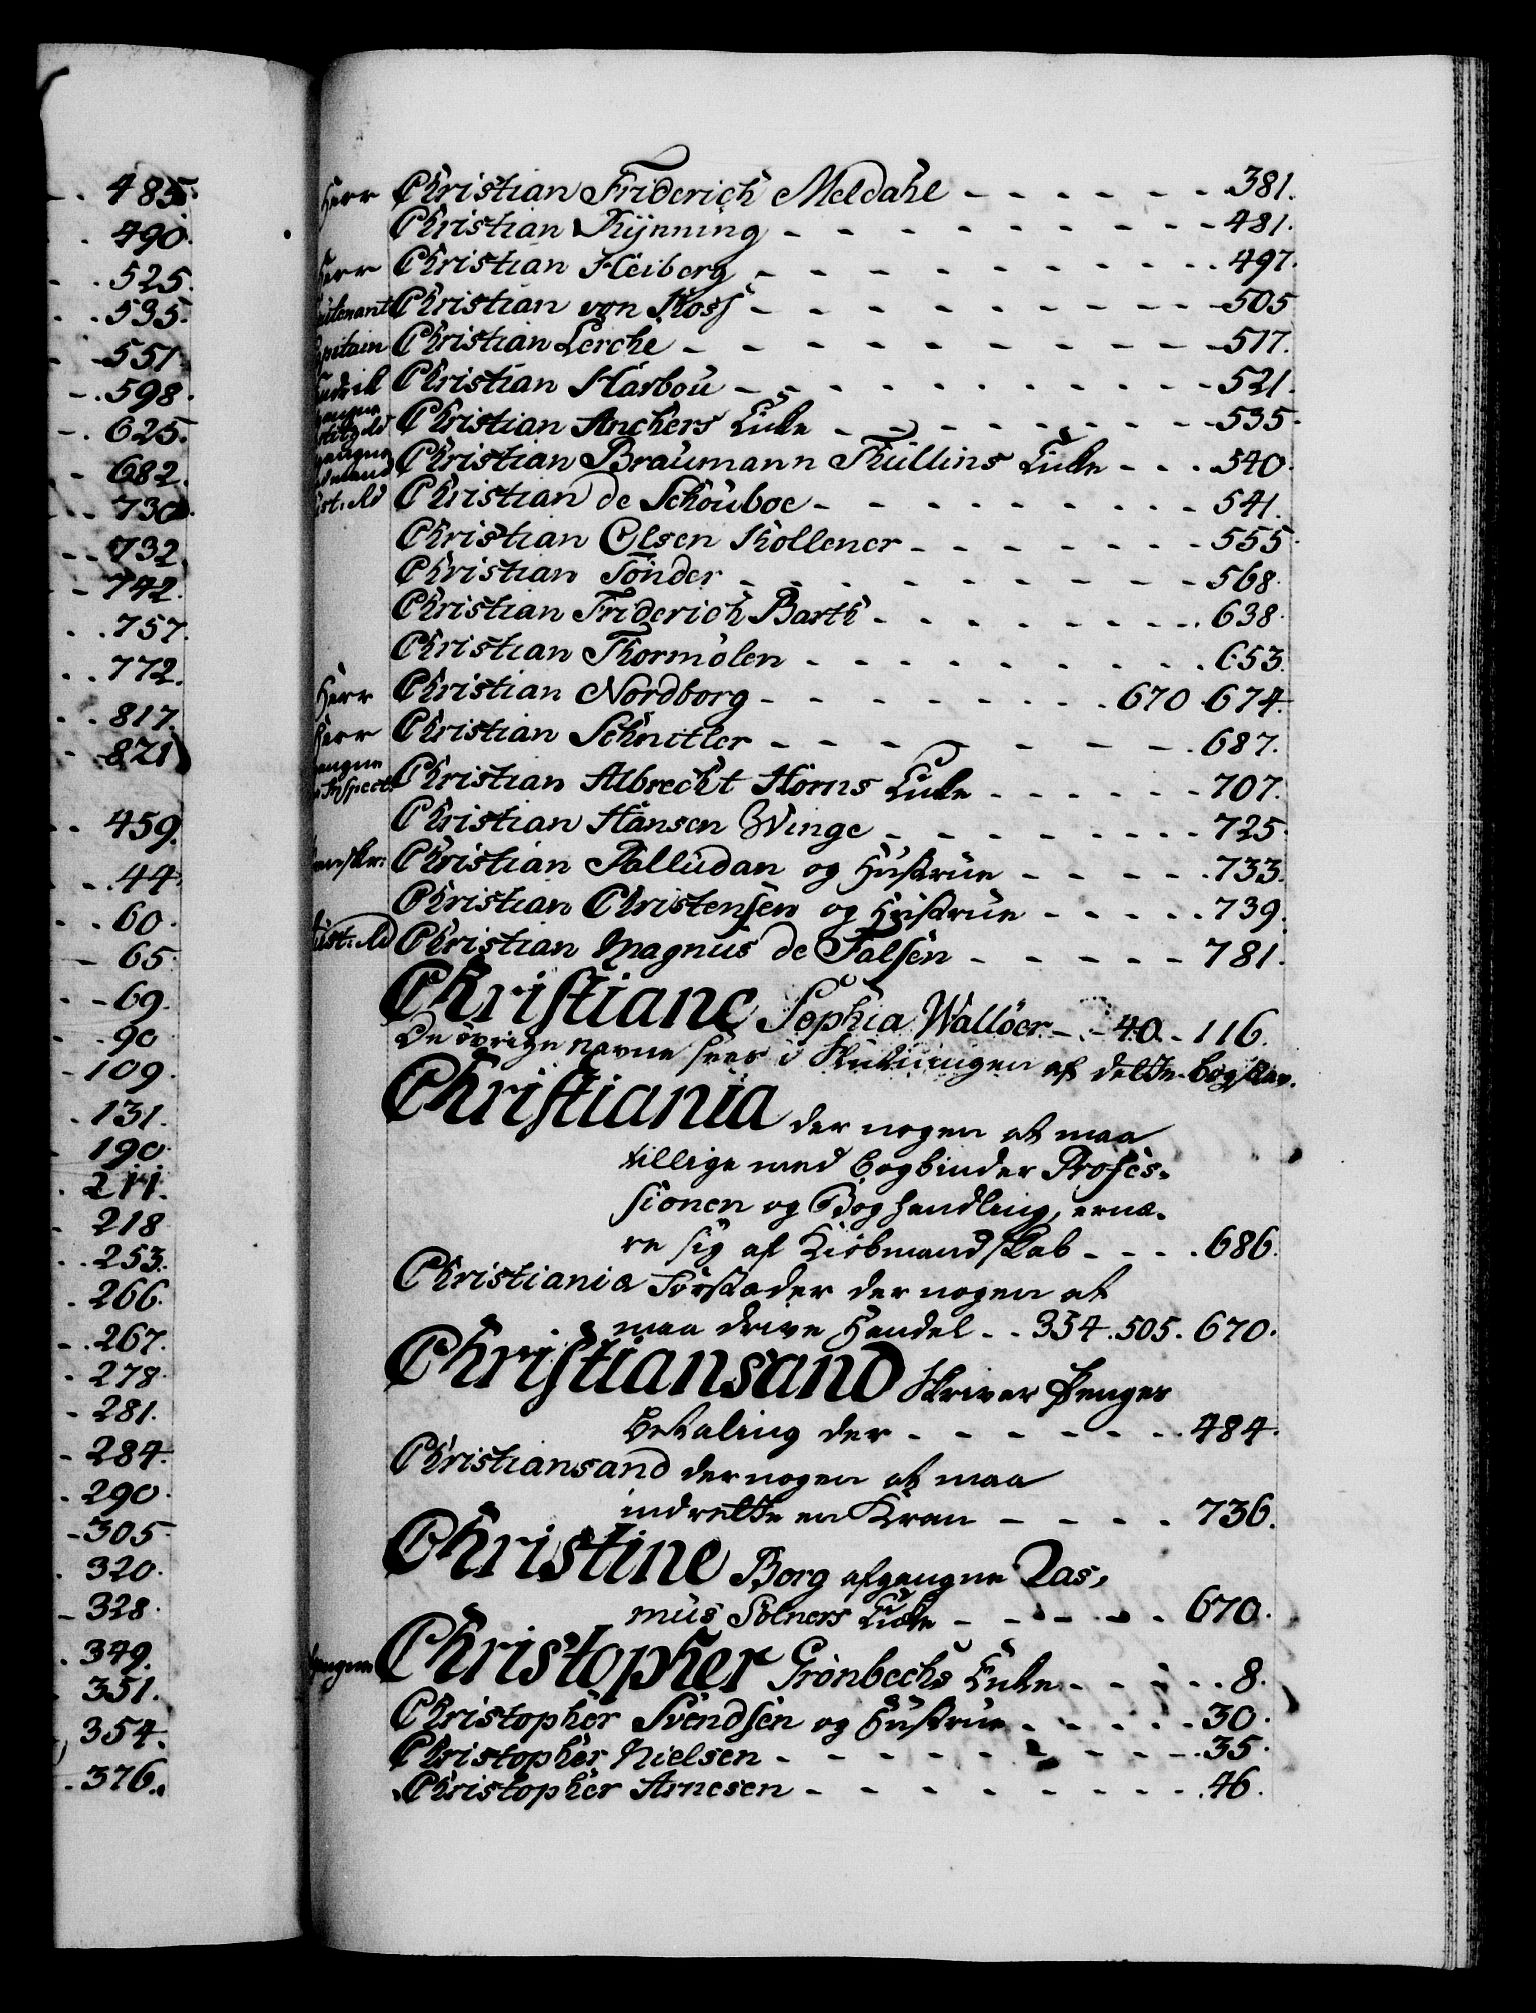 485.
490.
525.
535.
551.
598.
625.
682.
730.
732.
742.
757.
772.
817.
821
459.
44.
60.
65.
69.
90
109.
131.
190.
211.
218
253.
266.
267.
278.
281.
284.
290.
305
320.
328.
349.
351.
354.
376.
Herr Christian Friderich Meldahl - - - - - - - 381.
Christian Rÿnning - - - - - - - - - - 481.
Herr Christian Heiberg - - - - - - - - - - 497.
Christian von Koss - - - - - - - - - - 505
Christian Lerche - - - - - - - - - - - 517.
Christian Harbou - - - - - - - - - - 521.
Christian Anckers Enke - - - - - - - - 535.
Christian Braumann Tullins Enke - - - 540.
Christian de Schouboe - - - - - - - - 541.
Christian Olsen Kollener - - - - - - - 555.
Christian Tönder - - - - - - - - - - 568.
Christian Friderich Barth - - - - - - - 638.
Christian Thormölen - - - - - - - - - 653.
Herr Christian Nordborg - - - - - - - - 670. 674.
Herr Christian Schnitler - - - - - - - - - 687.
Inspect: Christian Albrecht Horns Enke - - - - - - 707.
Christian Hansen Winge - - - - - - - - 725.
Christian Palludan og Hustrue - - - - - - 733.
Christian Christensen og Hustrue - - - - - 739.
Christian Magnus de Falsen - - - - - 781.
Christiane Sophia Wallöer - - 40. - 116.
De övrige navne sees i Slutningen af dette bogstav.
Christiania der nogen at maa
tillige med bogbinder Profes-
sionen og Boghandling, ernæ-
re sig af Kiöbmandskab - - - - 686.
Christiania Forstæder der nogen at
maa drive Handel - - 354. 505. 670.
Christiansand Skriver Penges
Betaling der - - - - - - - 484.
Christiansand der nogen at maa
indrette en Kran - - - - - 736.
Christine Borg afgangne Ras-
mus Solners Enke - - - - - - 670.
Christopher Grönbechs Enke - - - - - 8.
Christopher Svendsen og Hustrue - - - - - 30.
Christopher Nielsen - - - - - - - - - - 35.
Christopher Arnesen - - - - - - - - - 46.